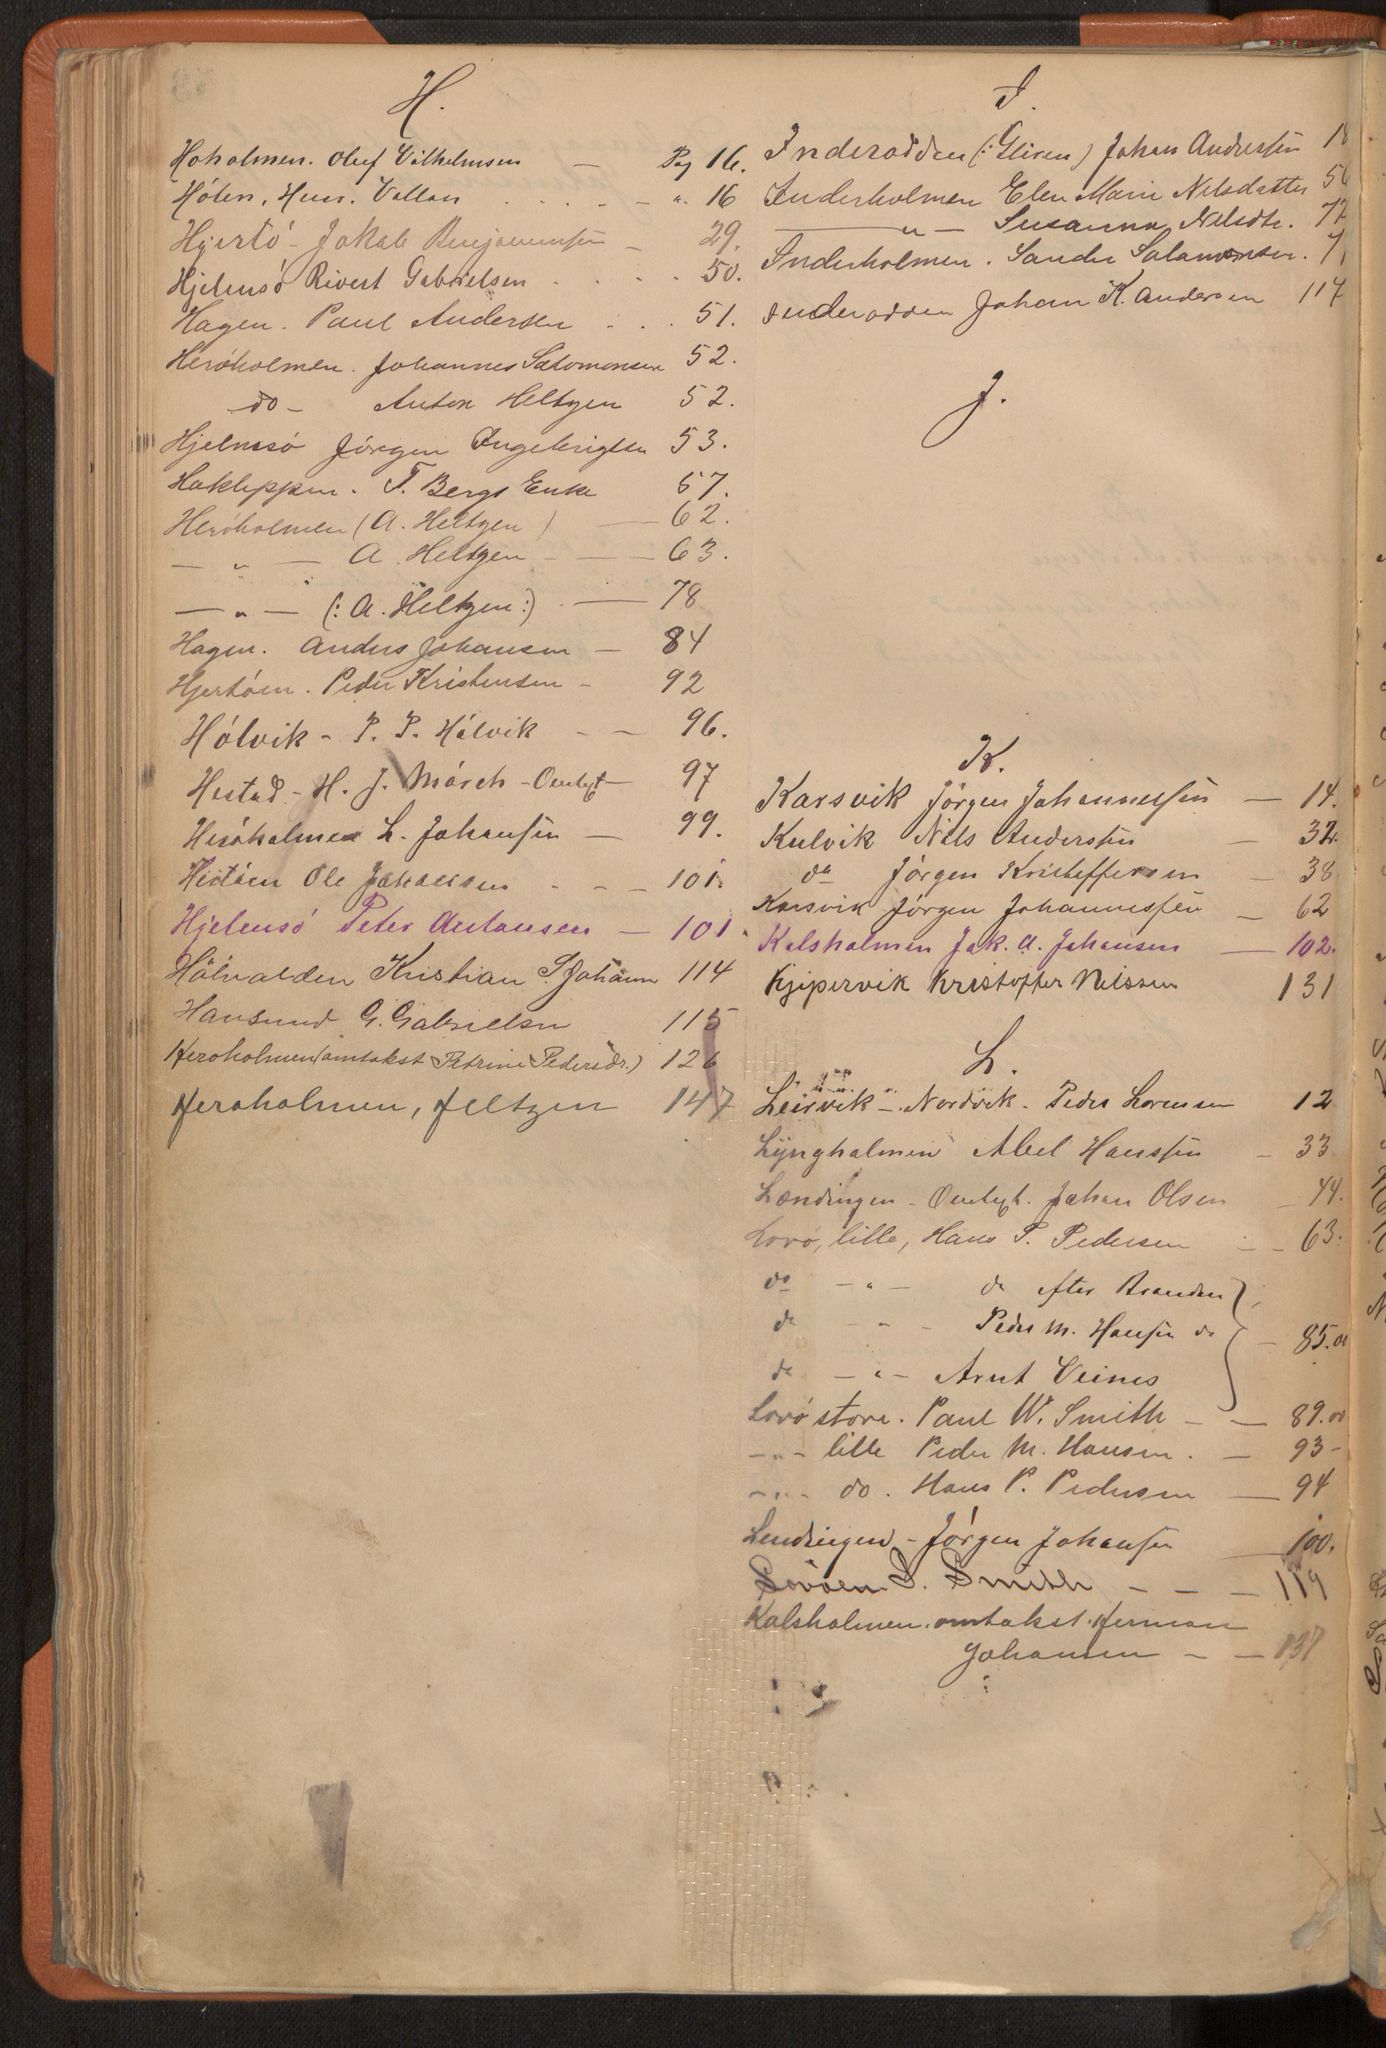 H.
Hoholmen. Oluf Vilhelmsen — Pag 16.
Höten, Hem. Vallan . . . . - " 16
Hjertö - Jakob Benjaminsen - 29.
Hjelmsö Rivert Gabrielsen . . . . 50.
Hagen. Paul Andersen . . . 51.
Heröholmen. Johannes Salomonsen 52.
do - Anton Heltzen 52.
Hjelmsö Jörgen Ingebrigtsen 53.
Hakleppen. T. Bergs Enke 57.
Heröholmen (A. Heltzen) — 62.
— " — A. Heltzen — 63.
— " — (: A. Heltzen :) — 78
Hagen. Anders Johansen — 84
Hjertöen. Peder Kristensen - 92
Hölvik - P. P. Hölvik - - 96.
Hestad - H. J. Mörch - Omtaxt - 97
Heröholmen L. Johansen — 99.
Ole Johansen . - - 101.
Hjelmsö Peter Antonsen — 101.
Hölvalden Kristian S. Johann 114
Hansund G. Gabrielsen 115
Heroholmen (omtakst Petrine Pedersdr.) 126
Heroholmen, Heltzen 147
I.
Inderodden (: Gliren) Johan Andersen 18
Inderholmen Elen Marie Nilsdatter 56
— " — Susanna Nelsdtr. 72
Inderholmen. Sander Salamonsen. 71
Inderodden Johan K. Andersen 117
J.
K.
Karsvik Jörgen Johannessen — 14.
Kulvik Nils Anderssen - 32.
do Jörgen Kristoffersen - 38
Karsvik Jörgen Johannessen - 62
Kalsholmen Jak. A. Johansen — 102.
Kjipervik Kristoffer Nilssen 131
L.
Leirvik - Nordvik - Peder Lorensen 12
Lyngholmen Abel Hanssen - 33
Lændingen - Omtaxt. Johan Olsen - 44.
Lovö, lille, Hans P. Pedersen - - 63.
do - " - do efter Branden }
do - " - Peder M. Hansen do } - 85.00
do - " - Arnt Veines
Lovö store. Paul W. Smith - — 89.00
- " - lille Peder M. Hansen. — 93 -
- " - do. Hans P. Pedersen — 94
Lendingen - Jörgen Johansen — 100.
Lovöen P. Smith - - - 119
Kalsholmen. omtakst. Herman
Johansen - - 137